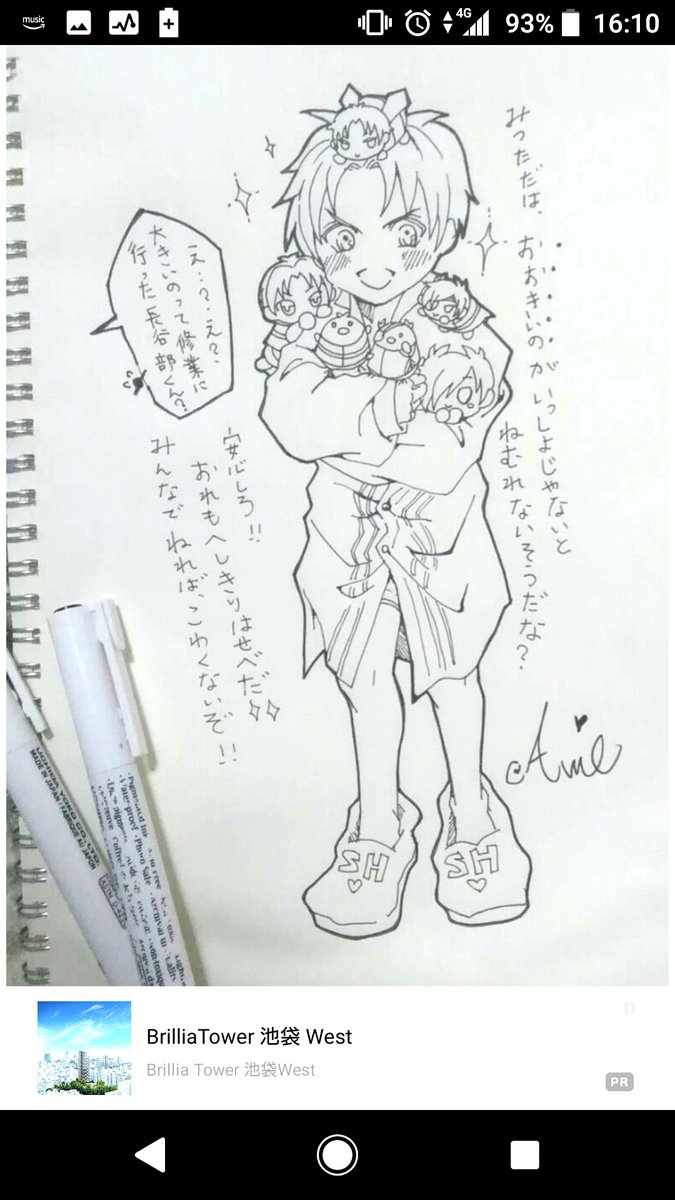 music
4G
93%
16:10
みつただは、おおきいの がいっしよじゃないと
ねむれないそうだな?
え…?…え?、
大きいのって修業に
行った長谷部くん?
安心しろ!!
おれもへしきりはせべだ
みんなでねれば、こわくないぞ!!
Ame
SH
SH
UCHIDA YOKO CO., LTD.
MADE IN JAPAN / FABRIQUE AU JAPON
BrilliaTower 池袋 West
Brillia Tower 池袋West
PR